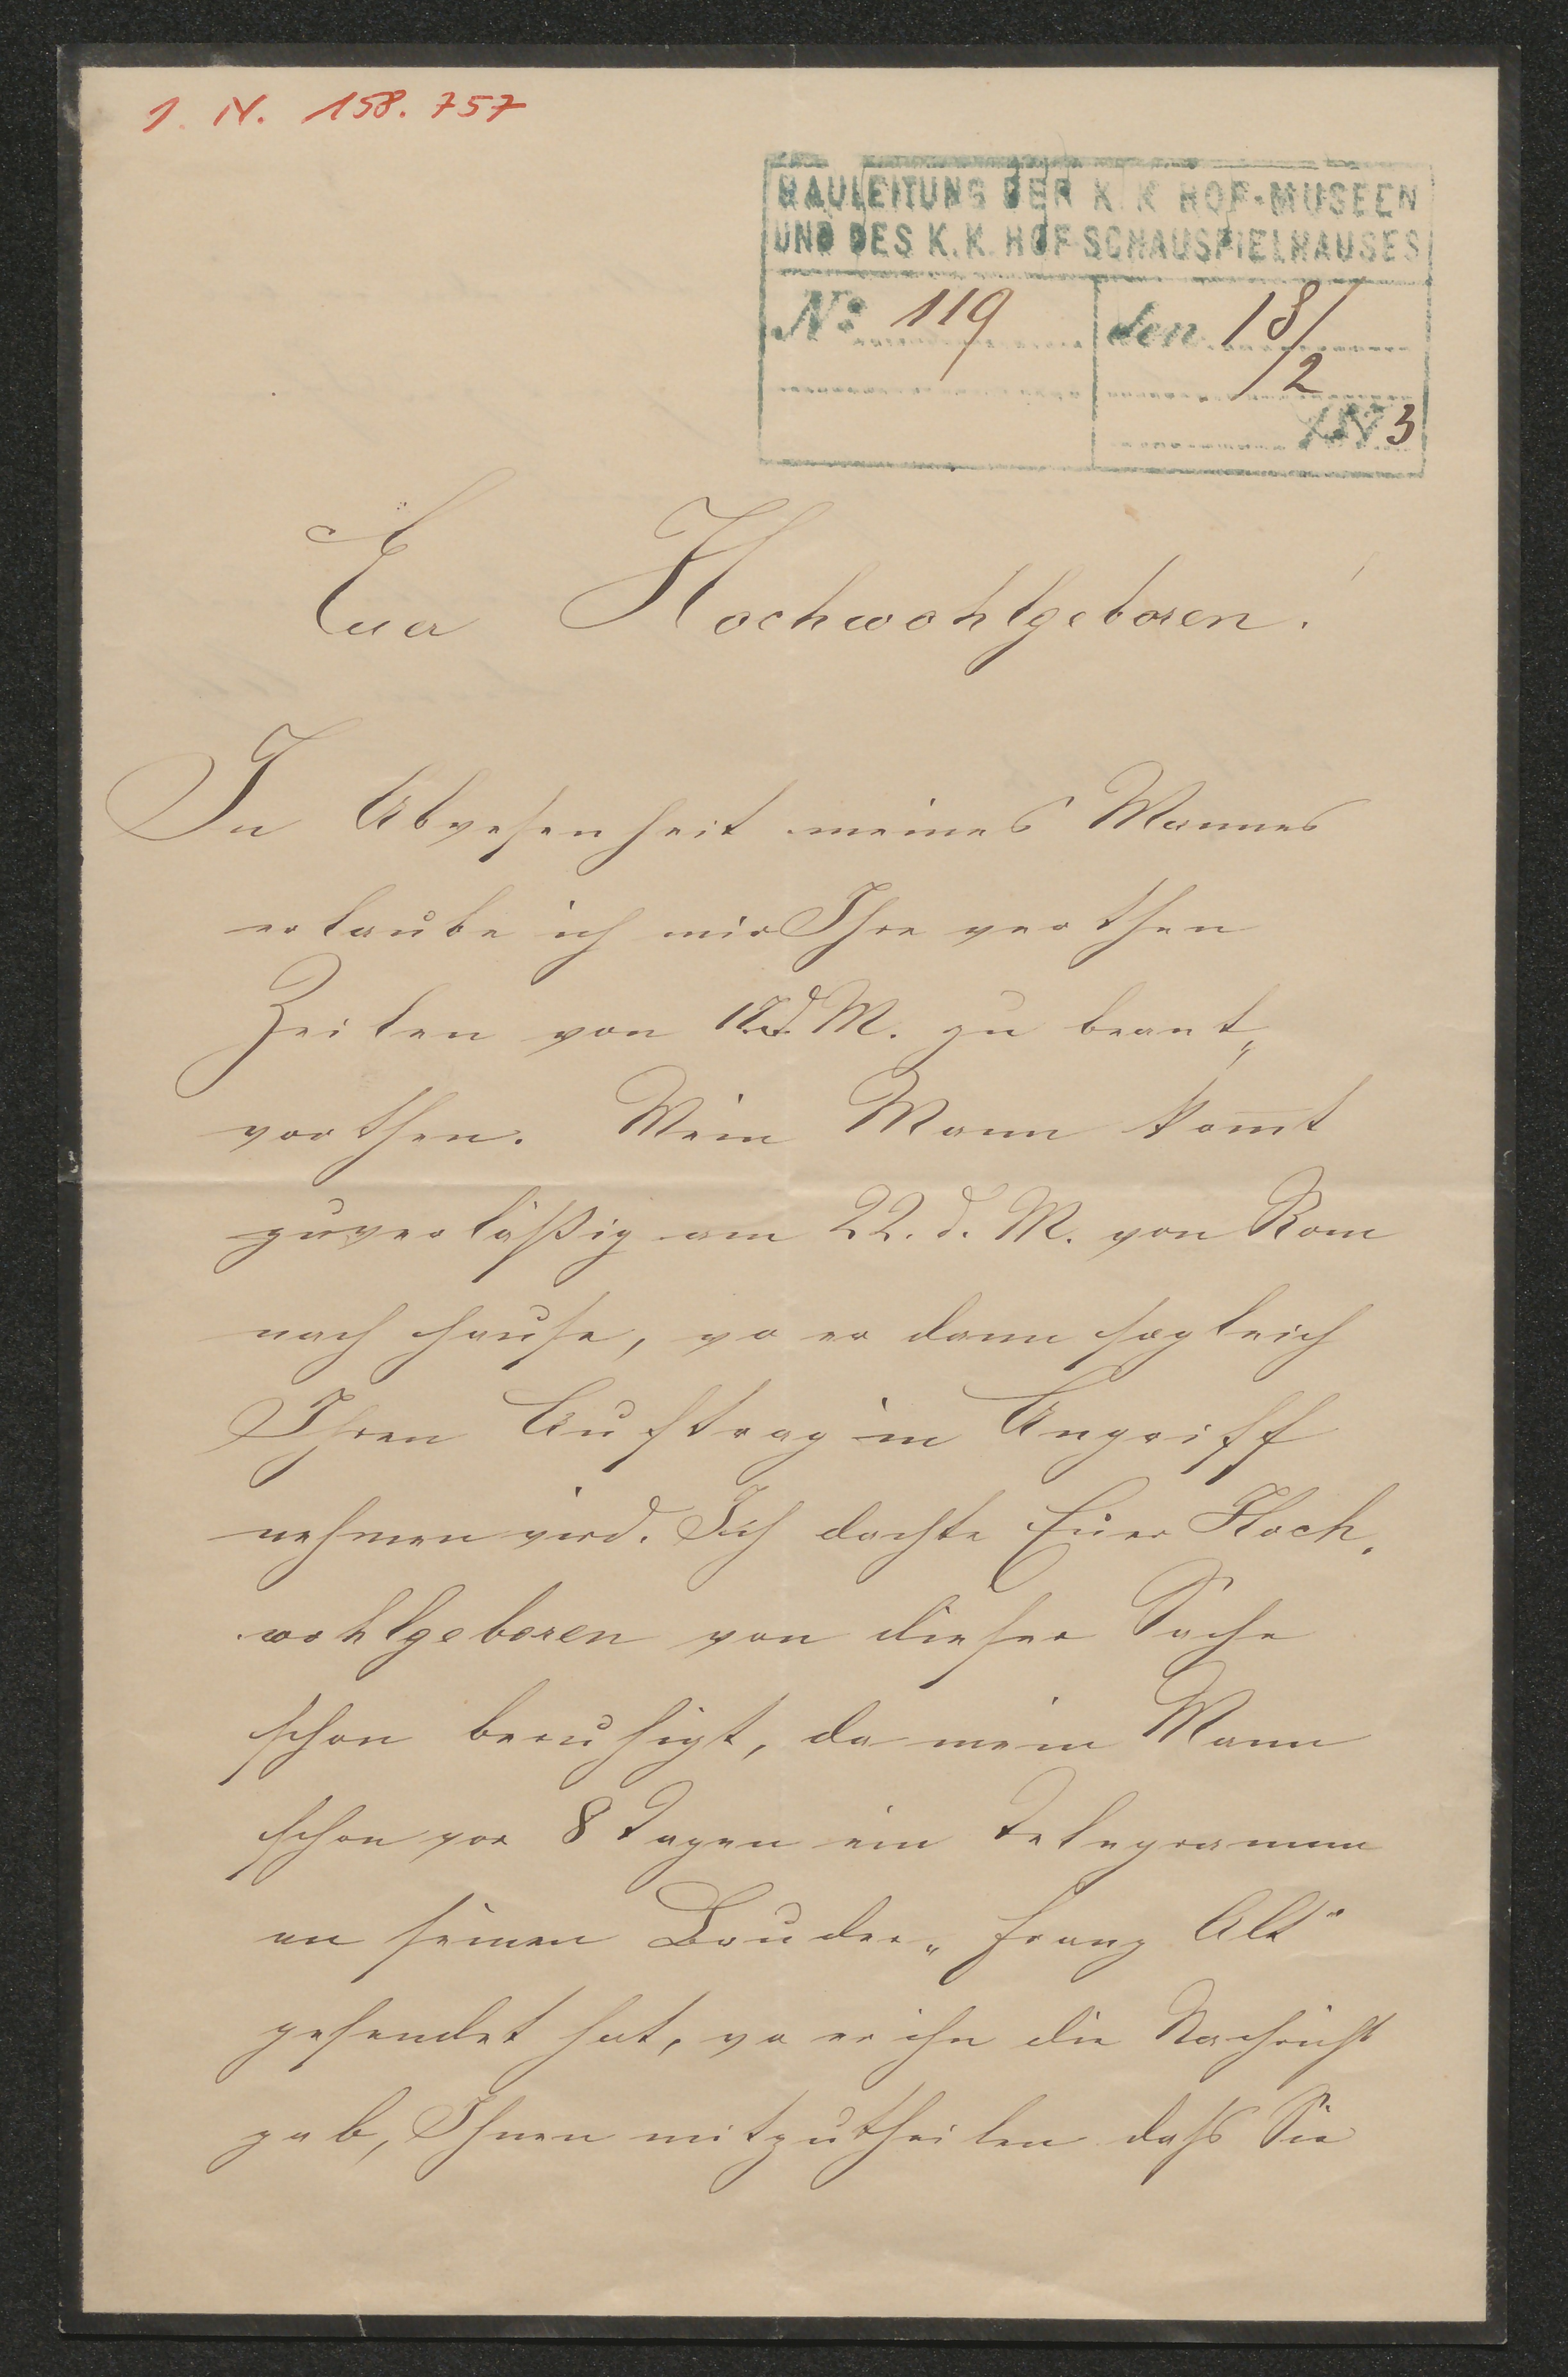 I. N. 158.757
BAULEITUNG DER K. K. HOF-MUSEEN
UND DES K. K. HOF-SCHAUSPIELHAUSES
No: 119 den 18/2
1873
Euer Hochwohlgeboren!
In Abwesenheit meines Mannes
erlaube ich mir Ihre werthen
Zeilen von 17. d. M. zu beant„
worthen. Mein Mann kom̄t
zuverläßig am 22. d. M. von Rom
nach hause, wo er dann sogleich
Ihren Auftrag in Angriff
nehmen wird. Ich dachte Euer Hoch„
wohlgeboren von dieser Sache
schon beruhigt, da mein Mann
schon vor 8 Tagen ein Telegramm
an seinen Bruder „Franz Alt“
gesendet hat, wo er ihn die Nachricht
gab, Ihnen mitzutheilen daß Sie